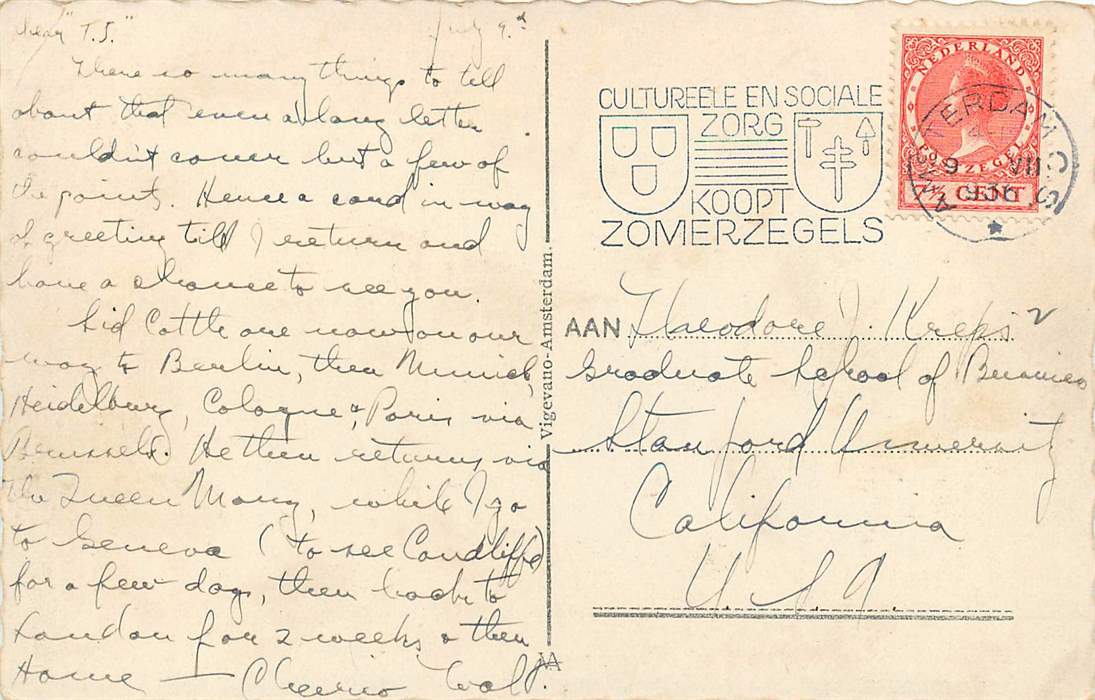 Dear "T.J."
July 9th
There so many things to tell
about that even a long letter
couldn't cover but a few of
the points. Hence a card in way
of greeting till I return and
have a chance to see you.
Sid Cottle are now on our
way to Berlin, then Munich,
Heidelburg, Cologne & Paris via
Brussels. He then returns via
the Queen Mary, while I go
to Geneva (to see Condliffe)
for a few days, then back to
London for 2 weeks & then
Home — Cheerio
Vigevano-Amsterdam.
CULTUREELE EN SOCIALE
ZORG
KOOPT
ZOMERZEGELS
NEDERLAND
POSTZEGEL
7½ CENT
AMSTERDAM C.S.
9 VII
1936
AAN Theodore J. Kreps
Graduate School of Business
Stanford University
California
USA